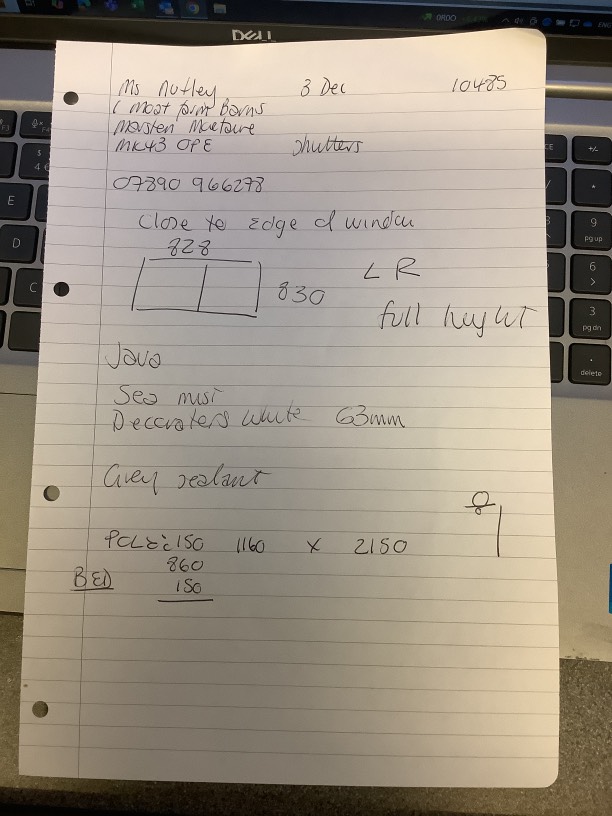 DELL
Ms Nutley 3 Dec 10485
1 Moat farm Barns
Marsten Moretaine
MK43 0PE Shutters
07890 966278
Close to Edge of window
828
830 L R
full height
Java
Sea mist
Decorators White 63mm
Grey sealant
POLE: 150 1160 x 2150
860
BED 150